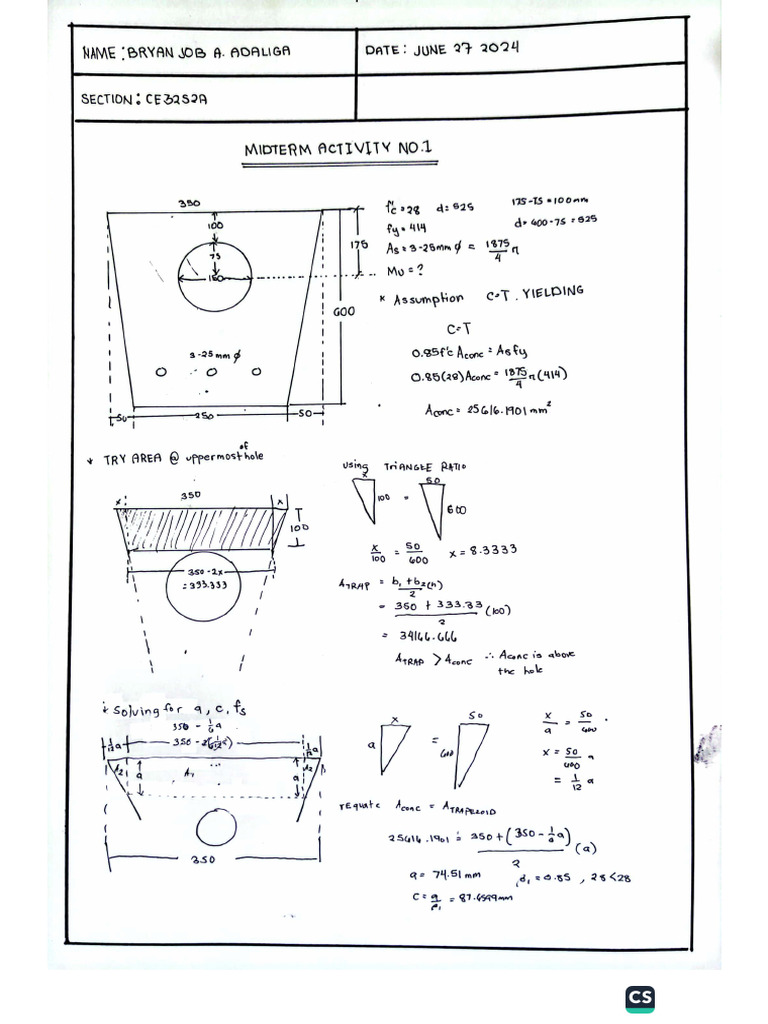 NAME: BRYAN JOB A. ADALIGA
DATE: JUNE 27 2024
SECTION: CE32S2A
MIDTERM ACTIVITY NO.1
350
100
75
150
175
600
3-25mm ϕ
50
250
50
f'c = 28 d = 525 175-75 = 100mm
fy = 414 d = 600-75 = 525
As = 3-25mm ϕ = 1875/4 π
Mu = ?
* Assumption C=T, YIELDING
C=T
0.85f'c Aconc = Asfy
0.85(28)Aconc = 1875/4 π (414)
Aconc = 25616.1901 mm²
* TRY AREA @ uppermost of hole
x
350
x
100
350-2x
= 333.333
using TRIANGLE RATIO
x
100 =
50
600
x/100 = 50/600 x = 8.3333
ATRAP = b1+b2(h)/2
= 350 + 333.33/2 (100)
= 34166.666
ATRAP > Aconc ∴ Aconc is above
the hole
* Solving for a, c, fs
350 - 1/6 a
1/12 a
350 - 2(1/12 a)
1/12 a
A2
a
A1
a
A2
350
x
a
=
50
600
x/a = 50/600
x = 50/600 a
= 1/12 a
requate Aconc = ATRAPEZOID
25616.1901 = 350+(350-1/6 a)/2 (a)
a = 74.51 mm
= 0.85, 28<28
C = a/β1 = 87.6599mm
CS